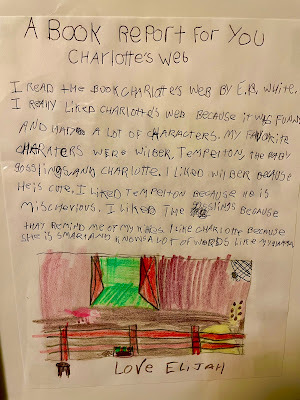 A BOOK REPORT FOR YOU
CHARLOTTE'S WEB
I READ THE BOOK CHARLOTTE'S WEB BY E.B. WHITE.
I REALLY LIKED CHARLOTTE'S WEB BECAUSE IT WAS FUNNY
AND HAD A LOT OF CHARACTERS. MY FAVORITE
CHARATERS WERE WILBER, TEMPELTON, THE BABY
GOSSLINGS AND CHARLOTTE. I LIKED WILBER BECAUSE
HE IS CUTE. I LIKED TEMPELTON BECAUSE HE IS
MISCHEVIOUS. I LIKED THE GOSSLINGS BECAUSE
THAT REMIND ME OF MY. I LIKE CHARLOTTE BECAUSE
SHE IS SMART AND KNOWS A LOT OF WORDS LIKE MY
LOVE ELIJAH